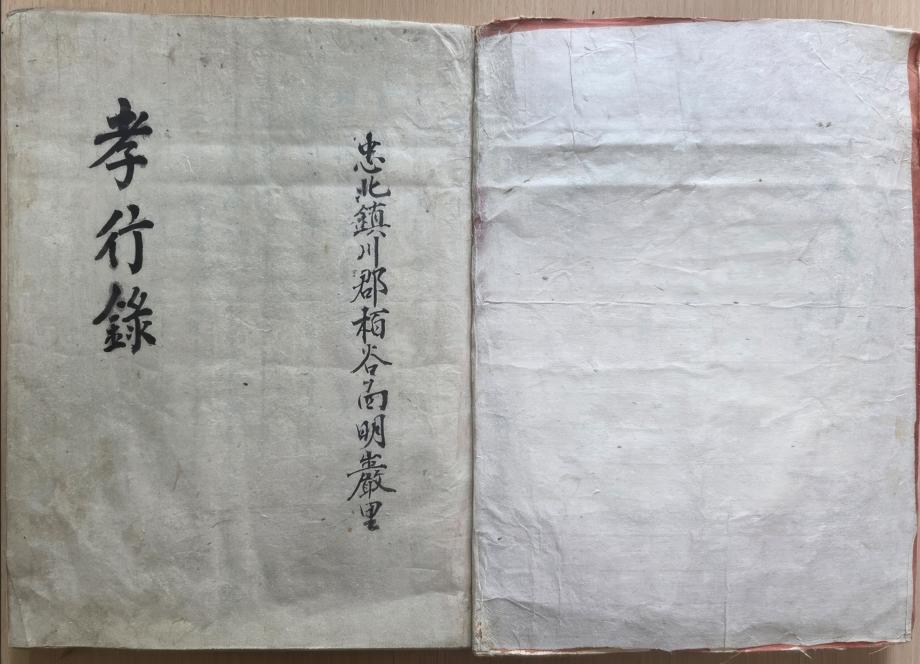 忠北鎭川郡栢谷面明巖里
孝行錄